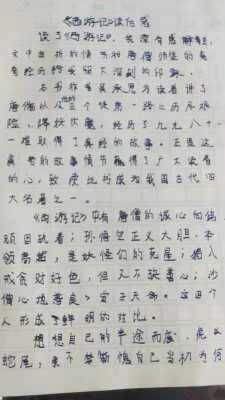 《西游记》读后感
读了《西游记》，我深有感触，
文中曲折的情节和唐僧师徒的真
善经历给我留下深刻的印象。
本书作者吴承恩为读者讲了
唐僧以及他的三个徒弟一路上历尽艰
险，降妖伏魔，经历了九九八十
一难取得了真经的故事。正是这
离奇的故事情节赢得了广大读者
的心，致使此书成为我国古代四
大名著之一。
《西游记》中有唐僧的诚心向佛
顽固执着；孙悟空正义大胆，本
领高超，是妖怪们的克星；猪八
戒贪财好色，但又不缺善心；沙
僧心地善良，安于天命。这四个
人形成了鲜明的对比。
想想自己的半途而废，虎头
蛇尾，真不禁惭愧自己当初为何